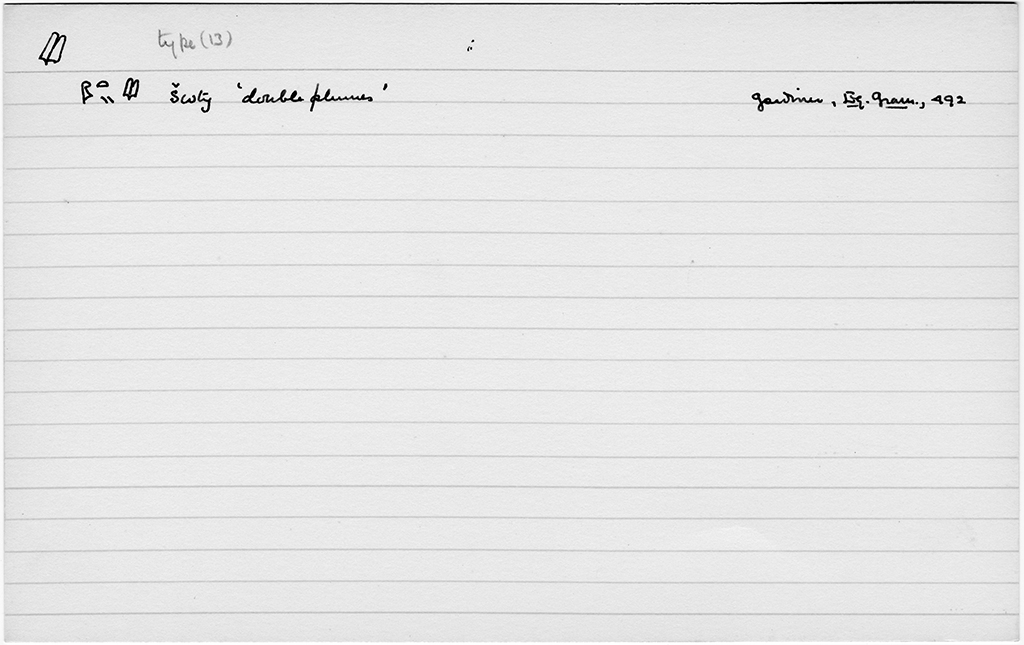 type (13)
𓆄𓏏𓏭 šwty 'double plumes' Gardiner, Eg. Gram., 492